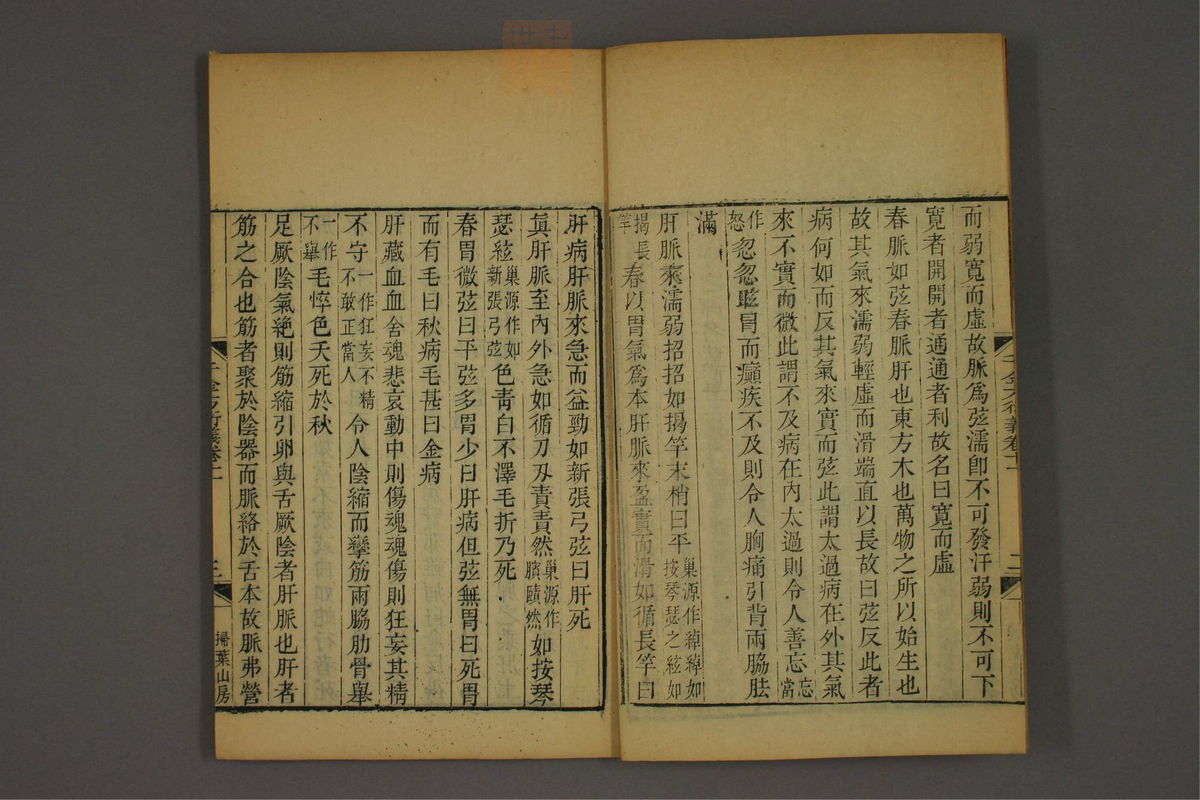 而弱寬而虛故脈爲弦濡卽不可發汗弱則不可下
寬者開開者通通者利故名曰寬而虛
春脈如弦春脈肝也東方木也萬物之所以始生也
故其氣來濡弱輕虛而滑端直以長故曰弦反此者
病何如而反其氣來實而弦此謂太過病在外其氣
來不實而微此謂不及病在內太過則令人善忘忘當
作怒忽忽眩冒而癲疾不及則令人胸痛引背兩脇胠
滿
肝脈來濡弱招招如揭竿末梢曰平巢源作綽綽如按琴瑟之絃如
揭長竿春以胃氣爲本肝脈來盈實而滑如循長竿曰
千金方衍義卷十一
二
肝病肝脈來急而益勁如新張弓弦曰肝死
眞肝脈至內外急如循刀刃責責然巢源作賾賾然如按琴
瑟絃巢源作如新張弓弦色靑白不澤毛折乃死
春胃微弦曰平弦多胃少曰肝病但弦無胃曰死胃
而有毛曰秋病毛甚曰金病
肝藏血血舍魂悲哀動中則傷魂魂傷則狂妄其精
不守一作狂妄不精不敢正當人令人陰縮而攣筋兩脇肋骨舉
一作不舉毛悴色夭死於秋
足厥陰氣絕則筋縮引卵與舌厥陰者肝脈也肝者
筋之合也筋者聚於陰器而脈絡於舌本故脈弗營
千金方衍義卷十一
三
掃葉山房